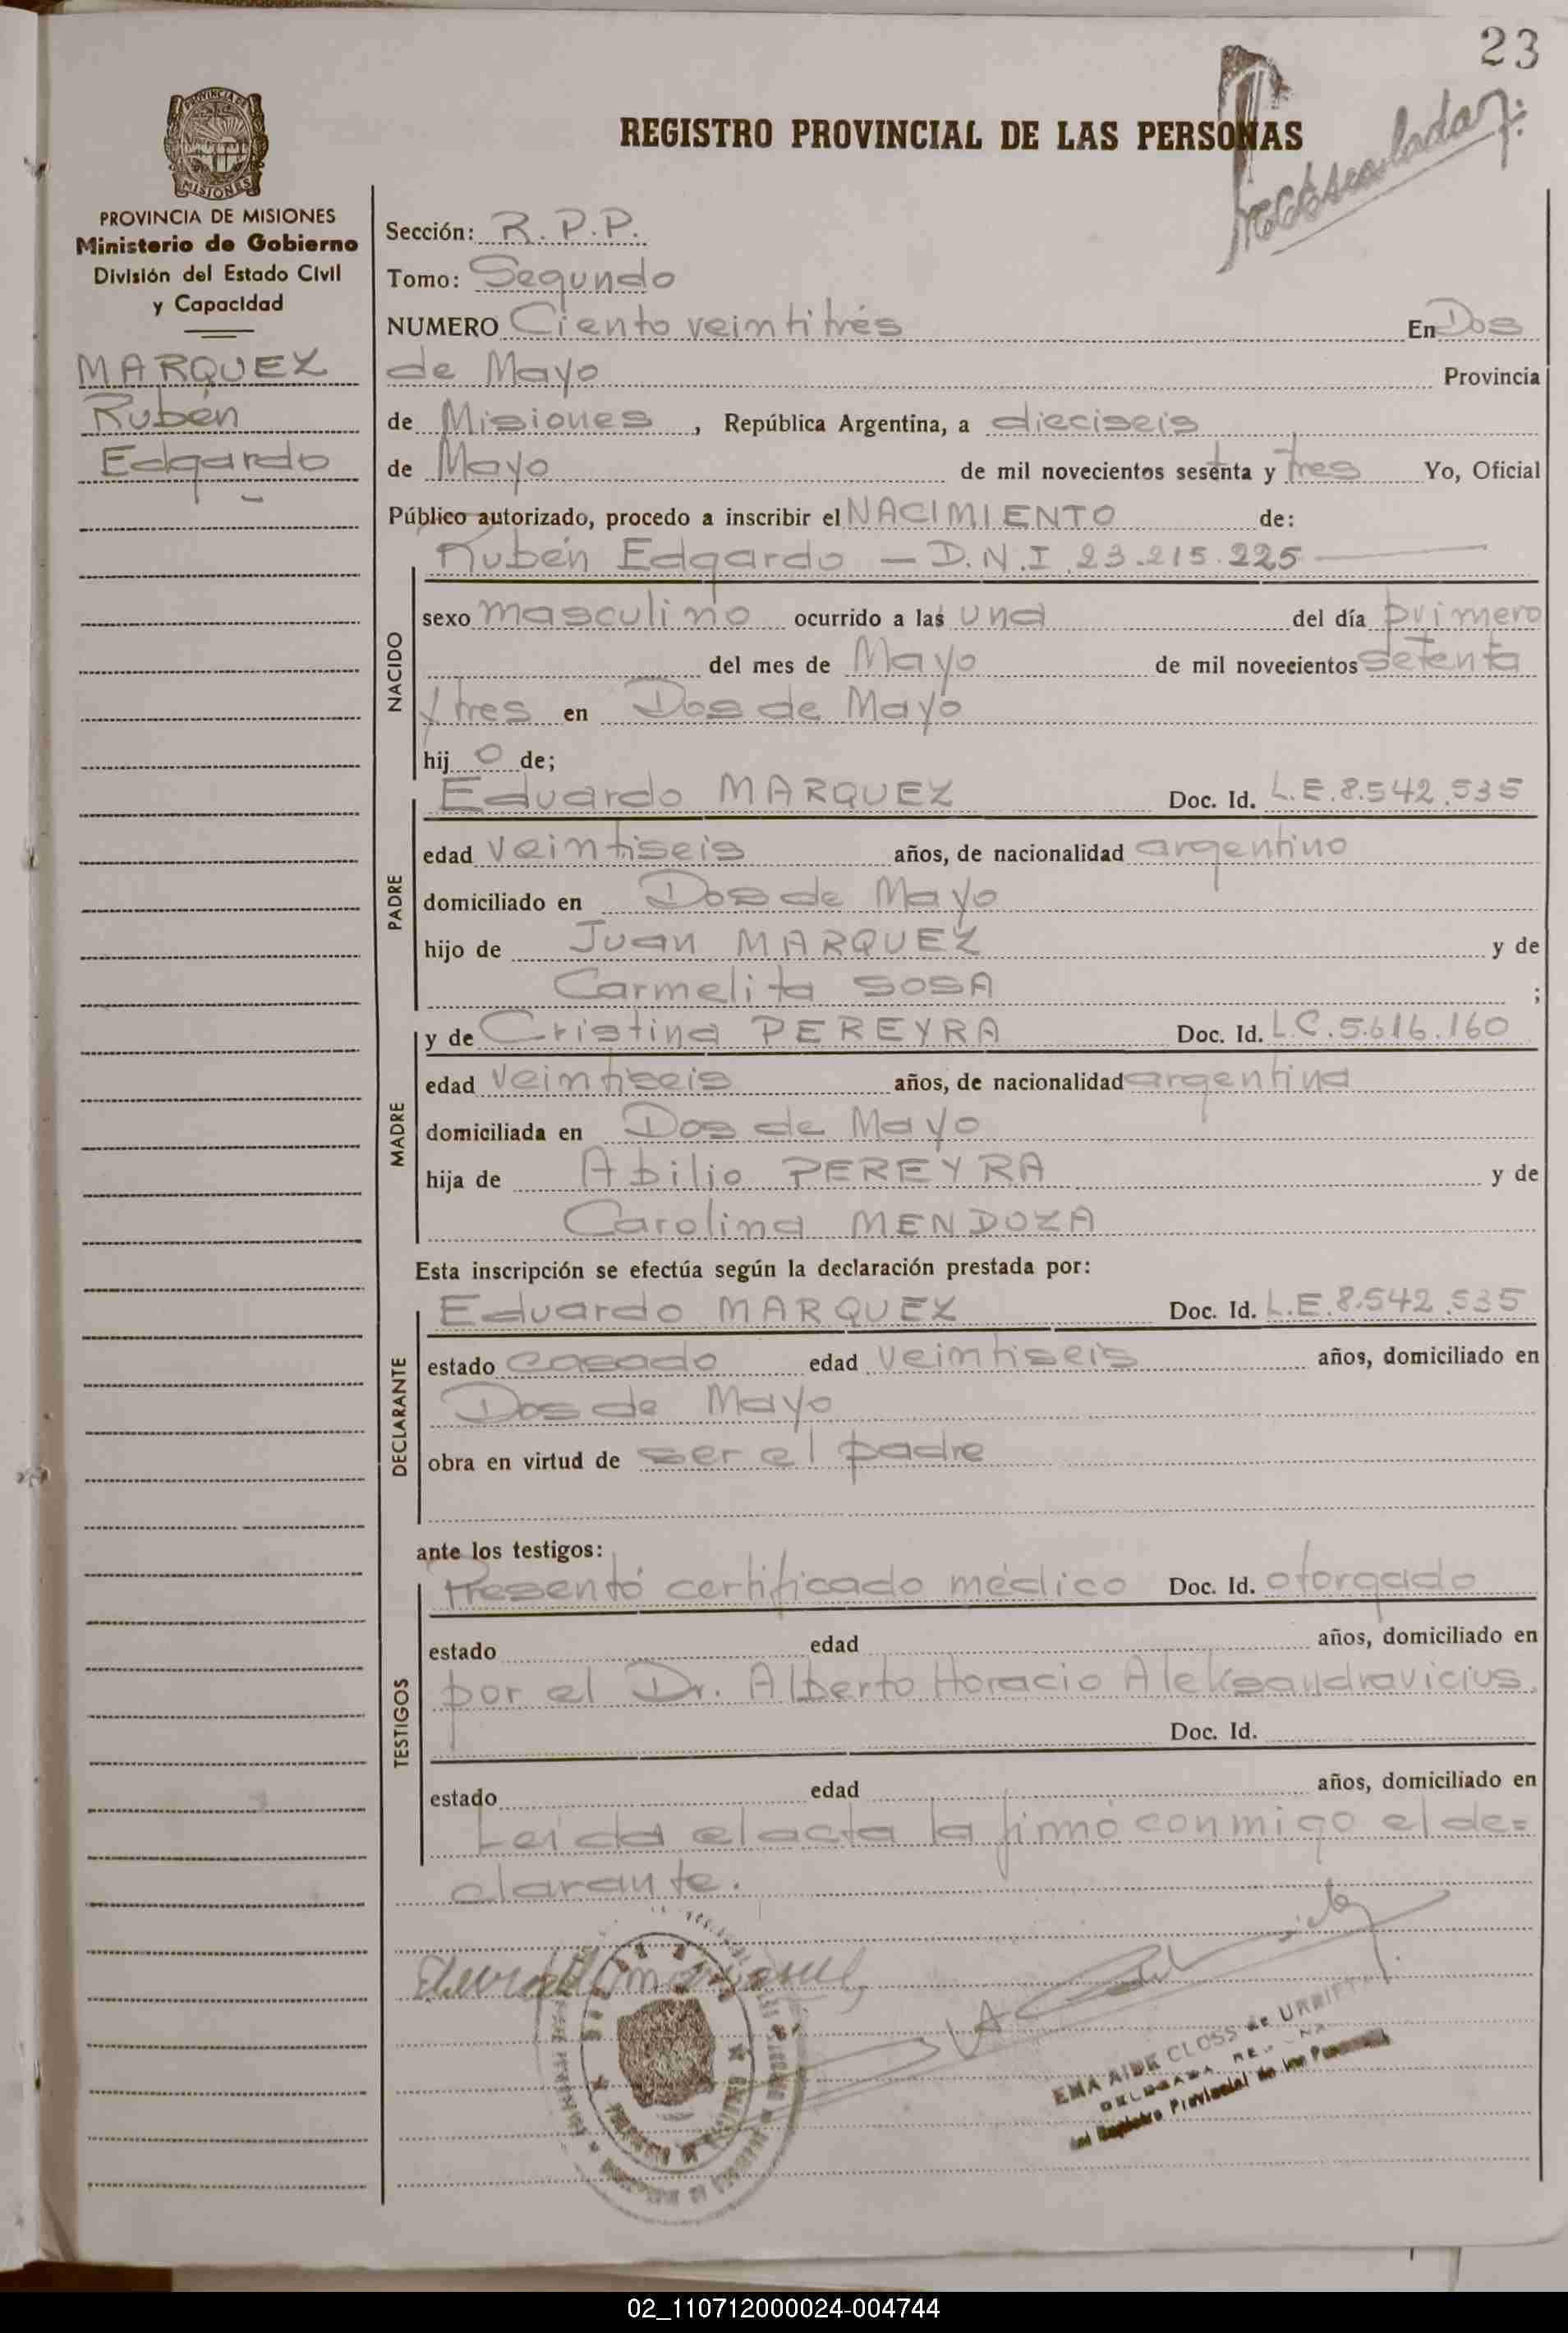 23
REGISTRO PROVINCIAL DE LAS PERSONAS
PROVINCIA DE MISIONES
Ministerio de Gobierno
División del Estado Civil
y Capacidad
MARQUEZ
Rubén
Edgardo
Sección: R.P.P.
Tomo: Segundo
NUMERO Ciento veintitrés En Dos
de Mayo Provincia
de Misiones, República Argentina, a dieciseis
de Mayo de mil novecientos sesenta y tres Yo, Oficial
Público autorizado, procedo a inscribir el NACIMIENTO de:
Rubén Edgardo — D.N.I. 23.215.225
NACIDO
sexo masculino ocurrido a las una del día primero
del mes de Mayo de mil novecientos setenta
y tres en Dos de Mayo
hijo de;
PADRE
Eduardo MARQUEZ Doc. Id. L.E.8.542.535
edad veintiseis años, de nacionalidad argentino
domiciliado en Dos de Mayo
hijo de Juan MARQUEZ y de
Carmelita SOSA ;
MADRE
y de Cristina PEREYRA Doc. Id. L.C.5.616.160
edad veintiseis años, de nacionalidad argentina
domiciliada en Dos de Mayo
hija de Abilio PEREYRA y de
Carolina MENDOZA
Esta inscripción se efectúa según la declaración prestada por:
DECLARANTE
Eduardo MARQUEZ Doc. Id. L.E.8.542.535
estado casado edad veintiseis años, domiciliado en
Dos de Mayo
obra en virtud de ser el padre
ante los testigos:
TESTIGOS
Presentó certificado médico Doc. Id. otorgado
estado edad años, domiciliado en
por el Dr. Alberto Horacio Aleksandravicius.
Doc. Id.
estado edad años, domiciliado en
Leida el acta la firmó conmigo el de=
clarante.
EMA AIDE CLOSS de URRIETA
del Registro Provincial de las Personas
02_110712000024-004744